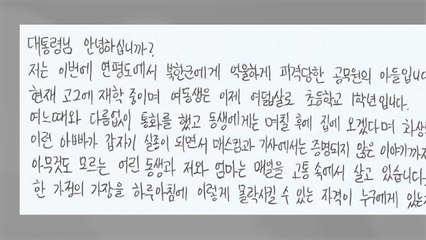 대통령님 안녕하십니까?
저는 이번에 연평도에서 북한군에게 억울하게 피격당한 공무원의 아들입니다
현재 고2에 재학 중이며 여동생은 이제 여덟살로 초등학교 1학년입니다.
여느때와 다름없이 통화를 했고 동생에게는 며칠 후에 집에 오겠다며 화상
이런 아빠가 갑자기 실종이 되면서 매스컴과 기사에서는 증명되지 않은 이야기까지
아무것도 모르는 어린 동생과 저와 엄마는 매일을 고통 속에서 살고 있습니다
한 가정의 가장을 하루아침에 이렇게 몰락시킬 수 있는 자격이 누구에게 있는